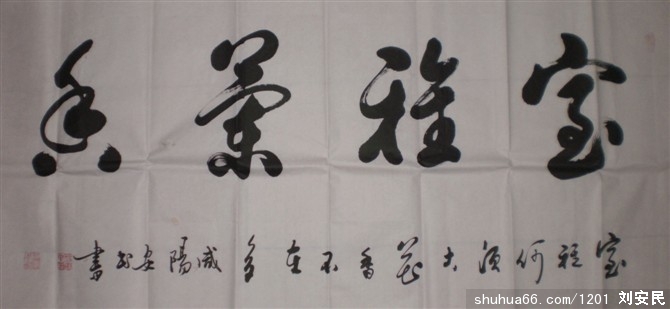 室雅兰香
室雅何须大花香不在多咸阳安民书
shuhua66.com/1201 刘安民